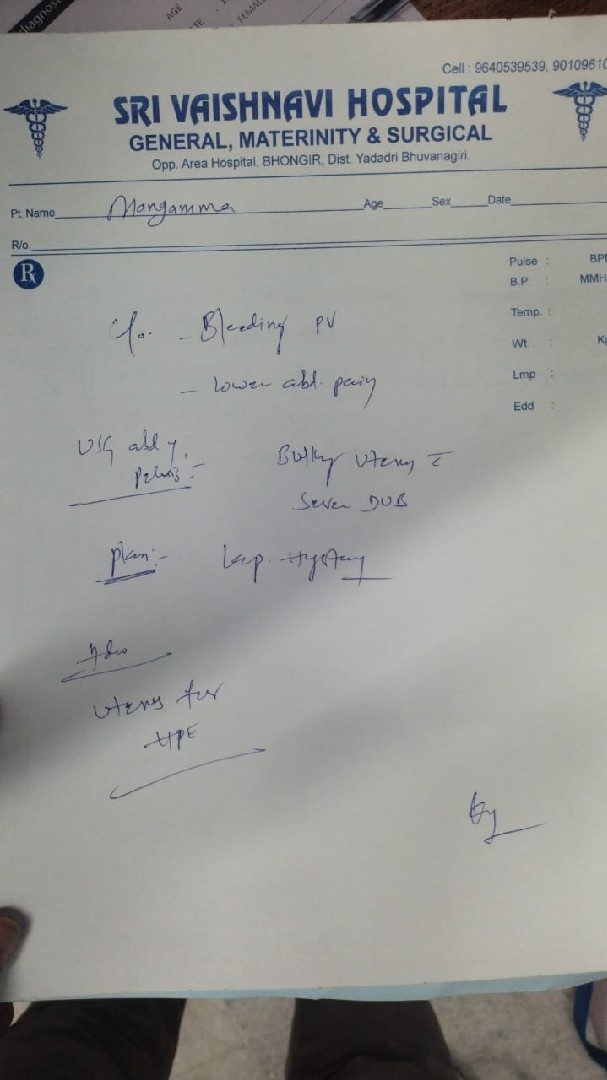 diagnos
AGE
FEMALE
Call : 9640539539, 90109610
SRI VAISHNAVI HOSPITAL
GENERAL, MATERINITY & SURGICAL
Opp. Area Hospital, BHONGIR, Dist. Yadadri Bhuvanagiri.
Pt. Name Mangamma Age Sex Date
R/o
Rx
Pulse : BPM
B.P : MMH
Temp. :
Wt : Kg
Lmp :
Edd :
C/o. - Bleeding PV
- Lower abd. pain
USG abd &
Pelvis :- Bulky uterus c̄
Severe DUB
Plan:- Lap. Hystery
Adv
Uterus for
HPE